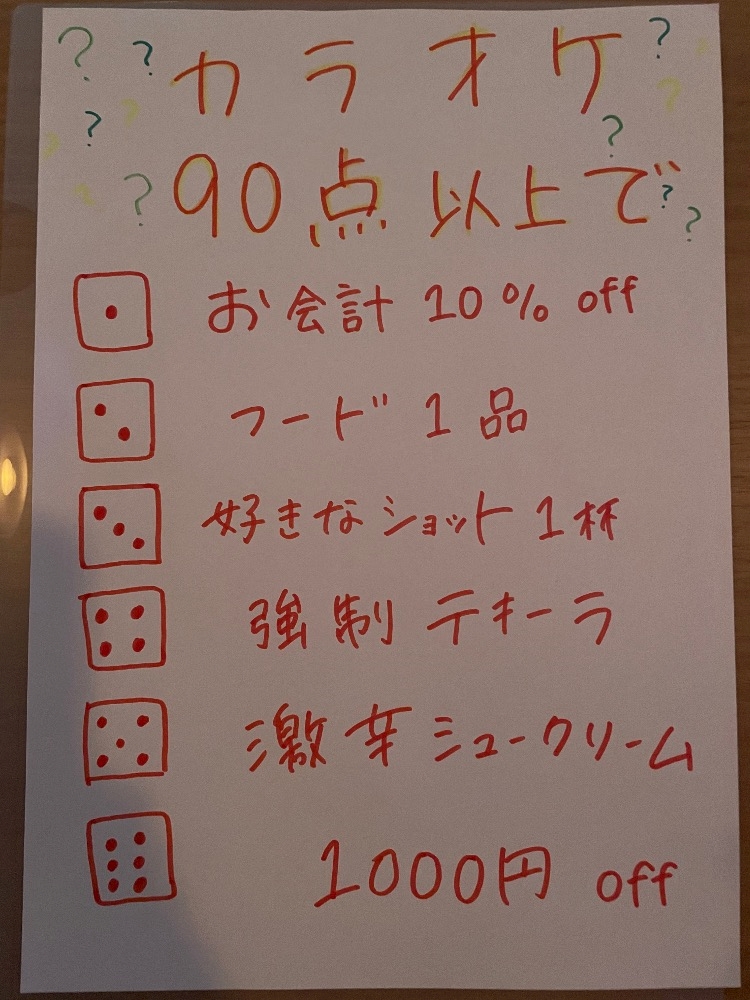 カラオケ
90点以上で
お会計 10% off
フード 1品
好きなショット 1杯
強制テキーラ
激辛シュークリーム
1000円 off